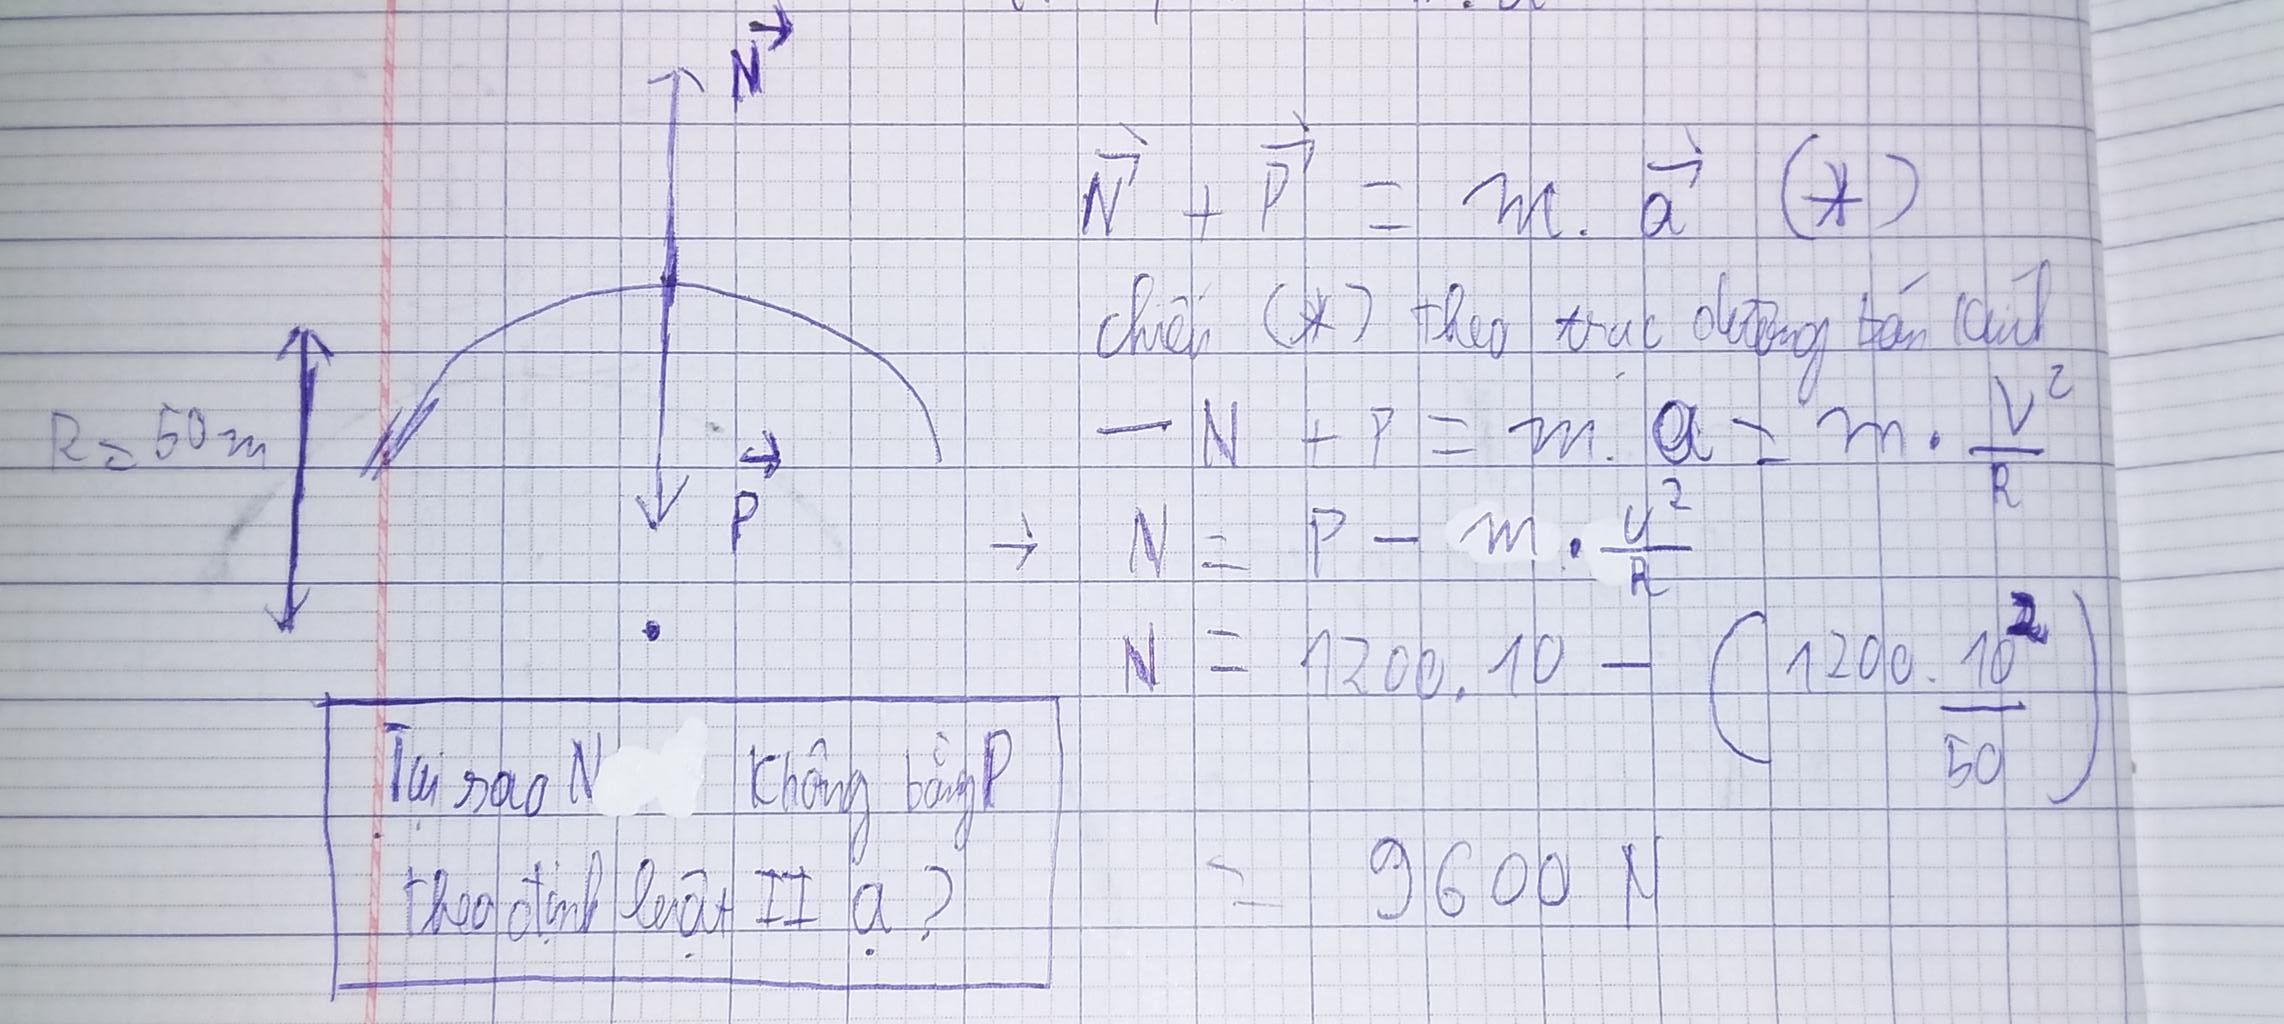 N⃗
R = 50m
P⃗
N⃗ + P⃗ = m. a⃗ (*)
chiếu (*) theo trục đường bán kính
- N + P = m. a = m. V²/R
→ N = P - m. v²/R
N = 1200.10 - (1200. 10²/50)
= 9600 N
Tại sao N không bằng P
theo định luật II ạ?